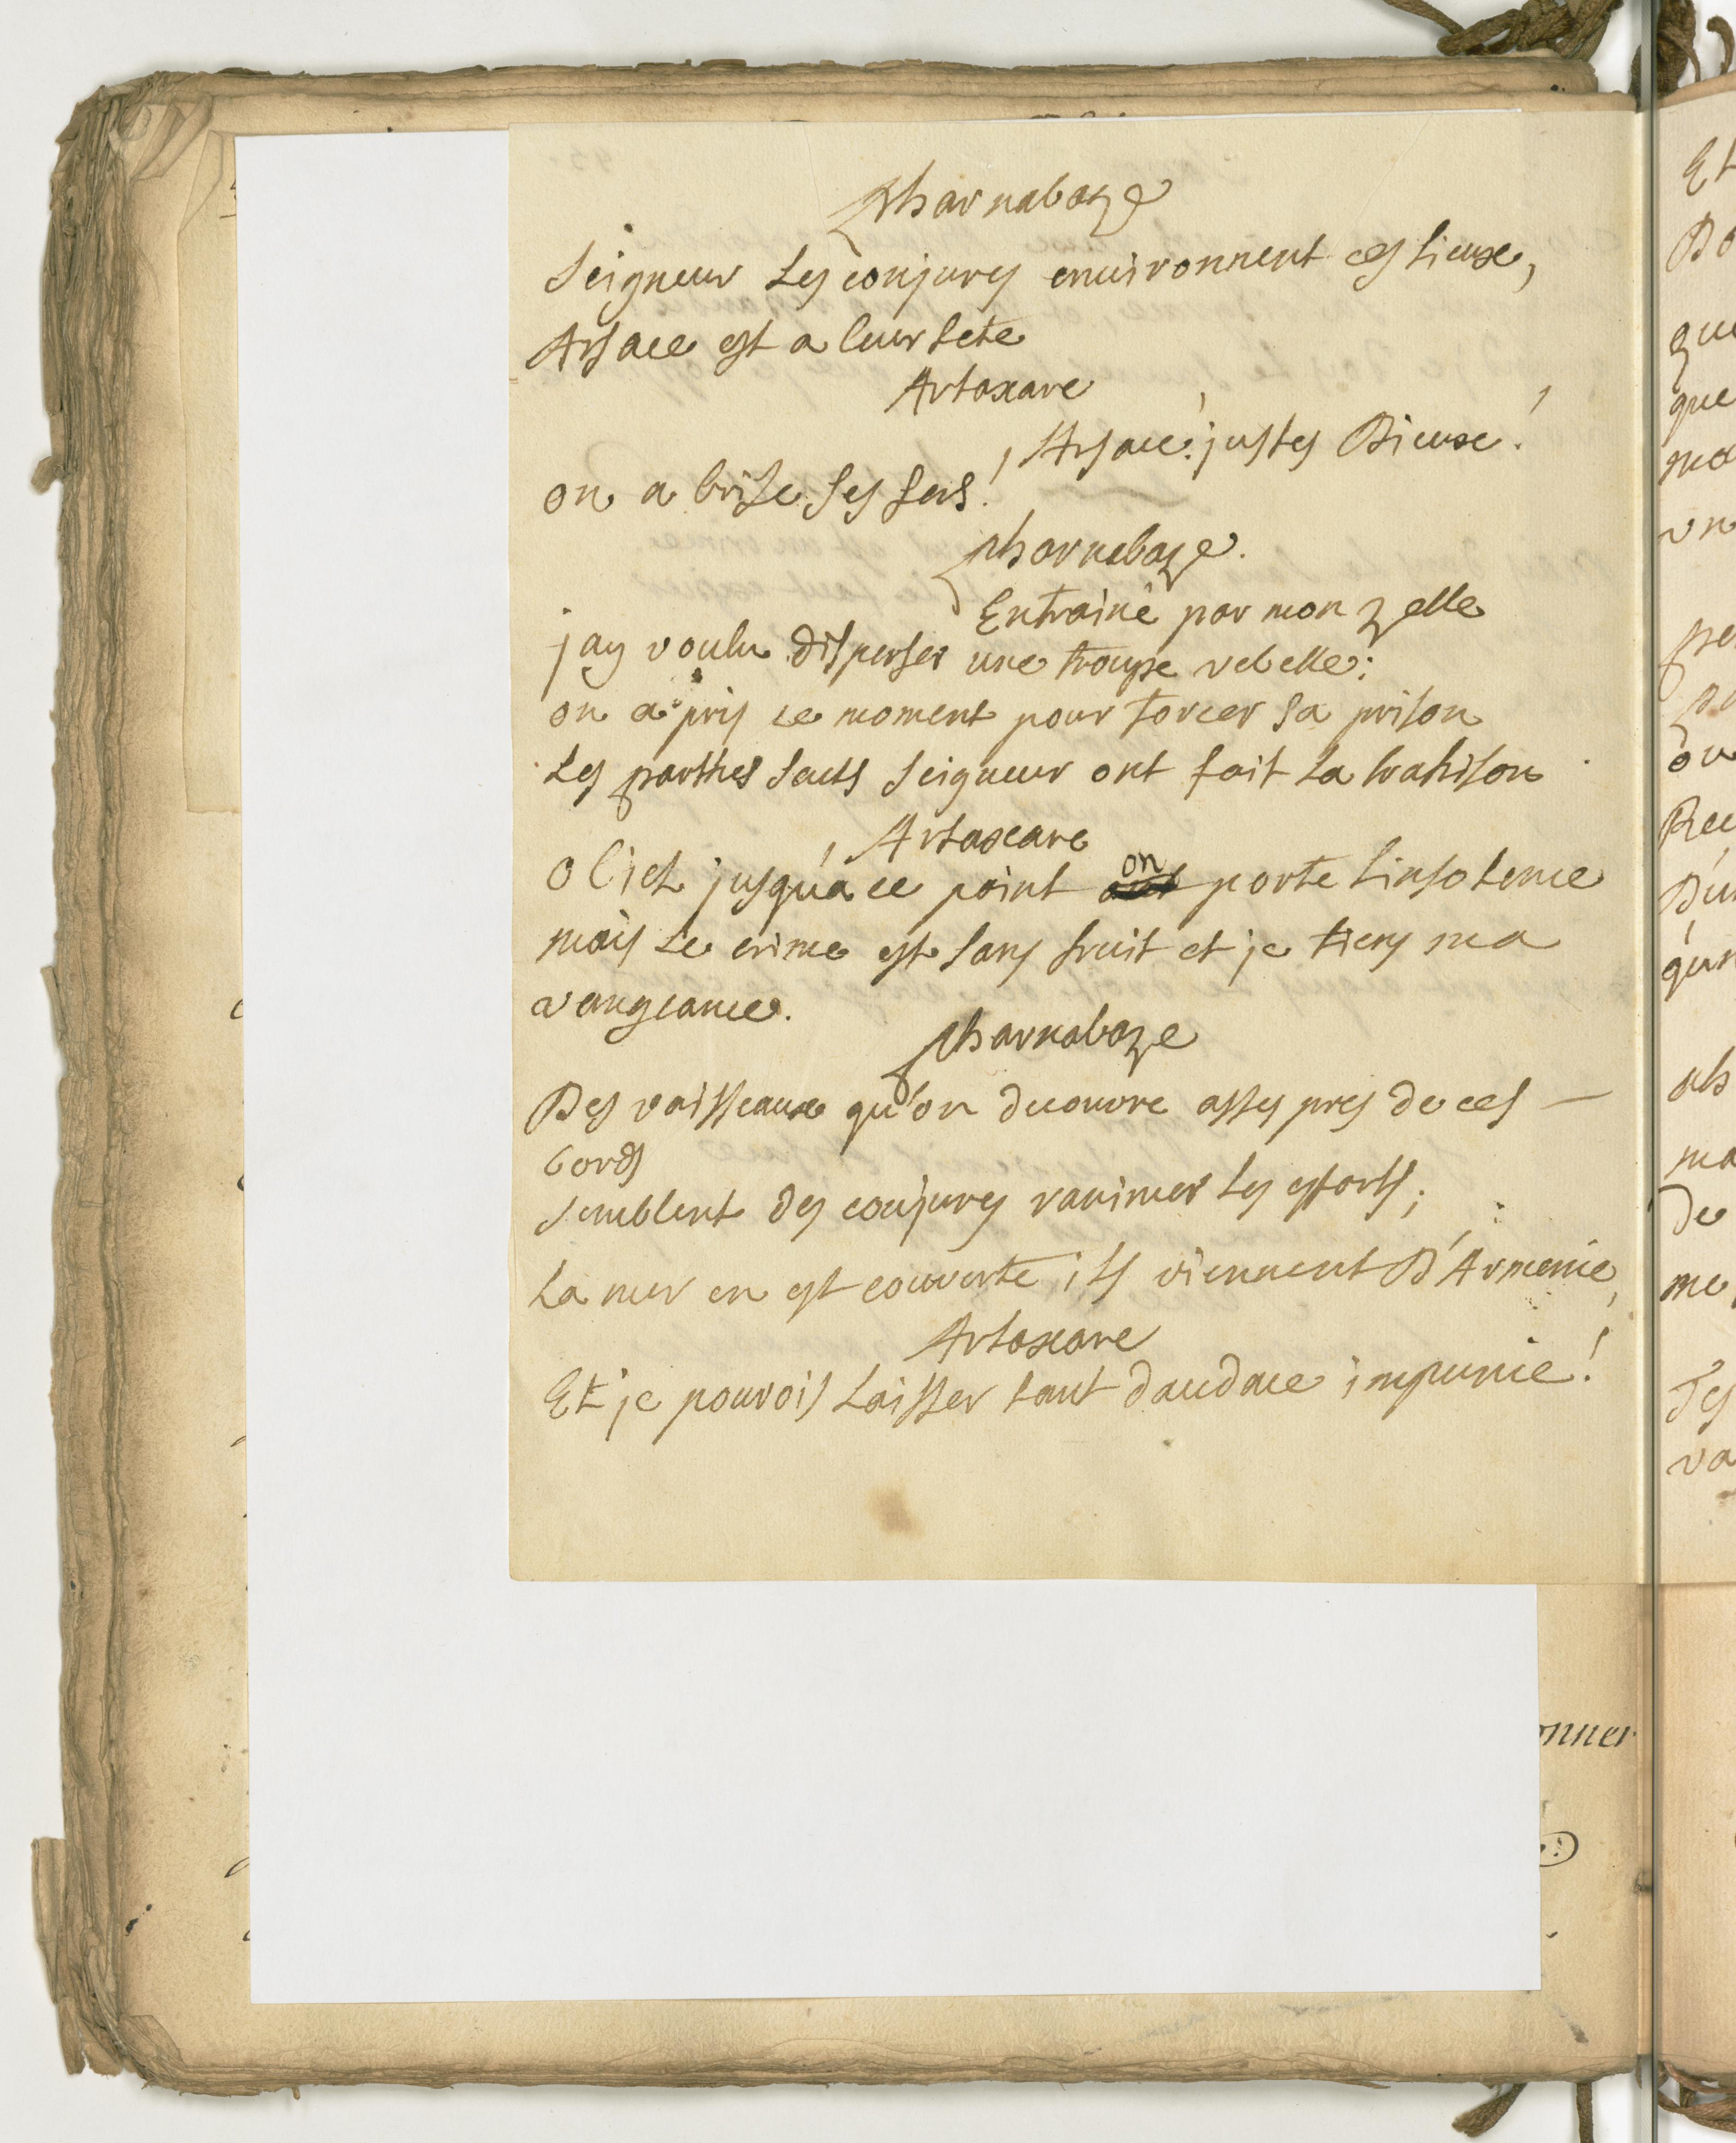 pharnabaze
Seigneur les conjures environnent ces lieux,
Arsace est a leur tete
Artaxare
Arsace! justes Dieux!
on a brise ses fers!
pharnabaze.
Entrainé par mon zelle
jay voulu disperser une troupe rebelle;
on a pris ce moment pour forcer sa prison
Les parthes seuls Seigneur ont fait la trahison
Artaxare
o Ciel jusqu'a ce point on porte linsolence
mais le crime est sans fruit et je tiens ma
vangeance.
pharnabaze
Des vaisseaux qu'on decouvre asses pres de ces —
bords
semblent des conjures ranimer les efforts;
La mer en est couverte, ils viennent D'Armenie,
Artaxare
Et je pourois laisser tant daudace impunie!
onner